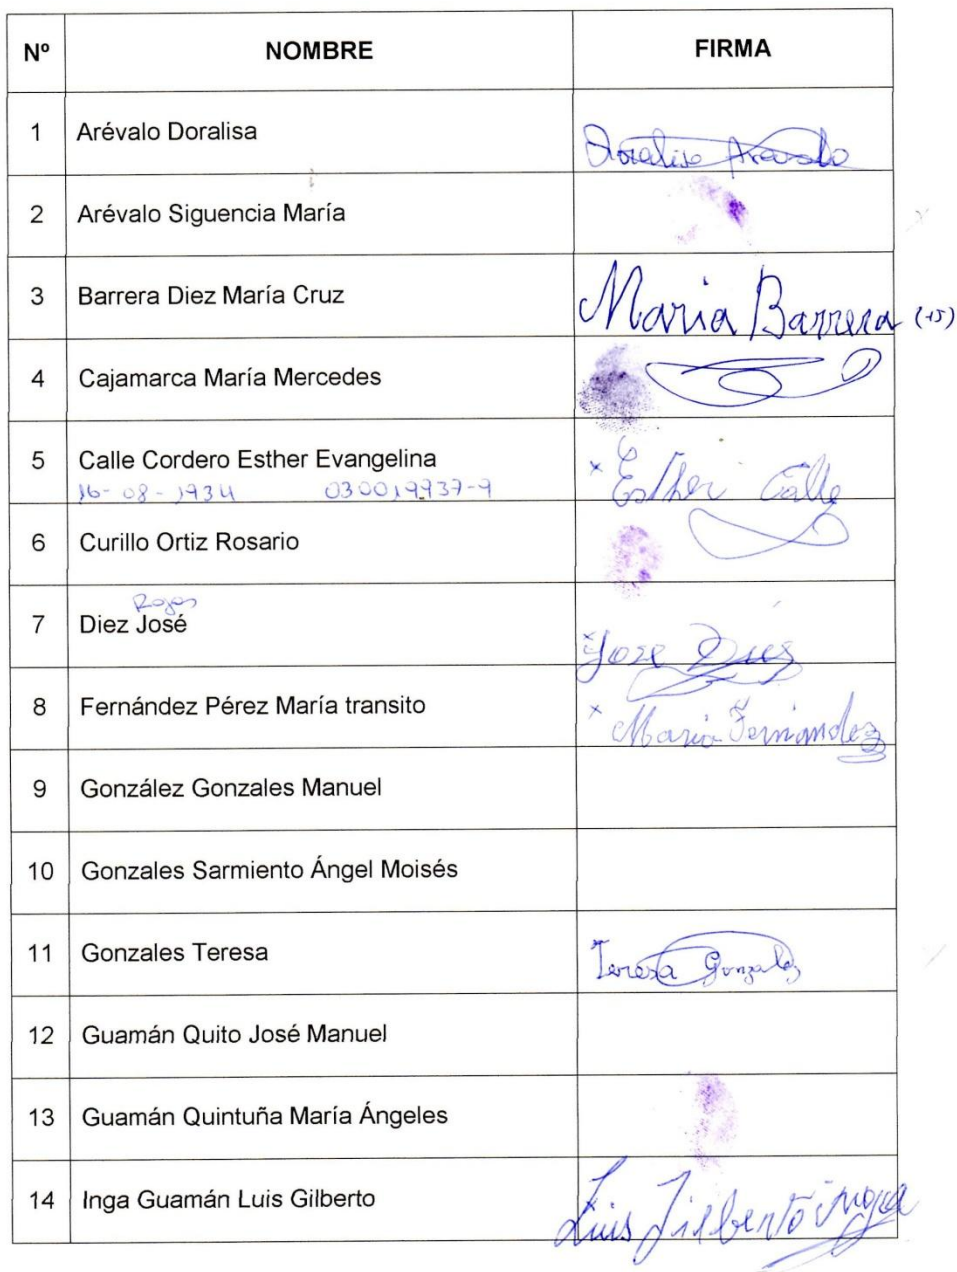 Nº NOMBRE FIRMA
1 Arévalo Doralisa Doralisa Arevalo
2 Arévalo Siguencia María
3 Barrera Diez María Cruz Maria Barrera (15)
4 Cajamarca María Mercedes
5 Calle Cordero Esther Evangelina x Esther Calle
16-08-1934 030019937-9
6 Curillo Ortiz Rosario
Rojas
7 Diez José x Jose Dies
8 Fernández Pérez María transito x Maria Fernandez
9 González Gonzales Manuel
10 Gonzales Sarmiento Ángel Moisés
11 Gonzales Teresa Teresa Gonzalez
12 Guamán Quito José Manuel
13 Guamán Quintuña María Ángeles
14 Inga Guamán Luis Gilberto Luis Jilberto inga